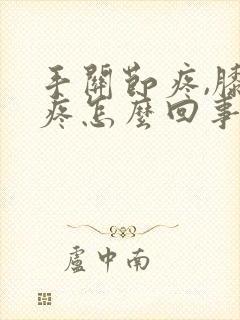 手關節疼,膝
疼怎麼回事
盧中南